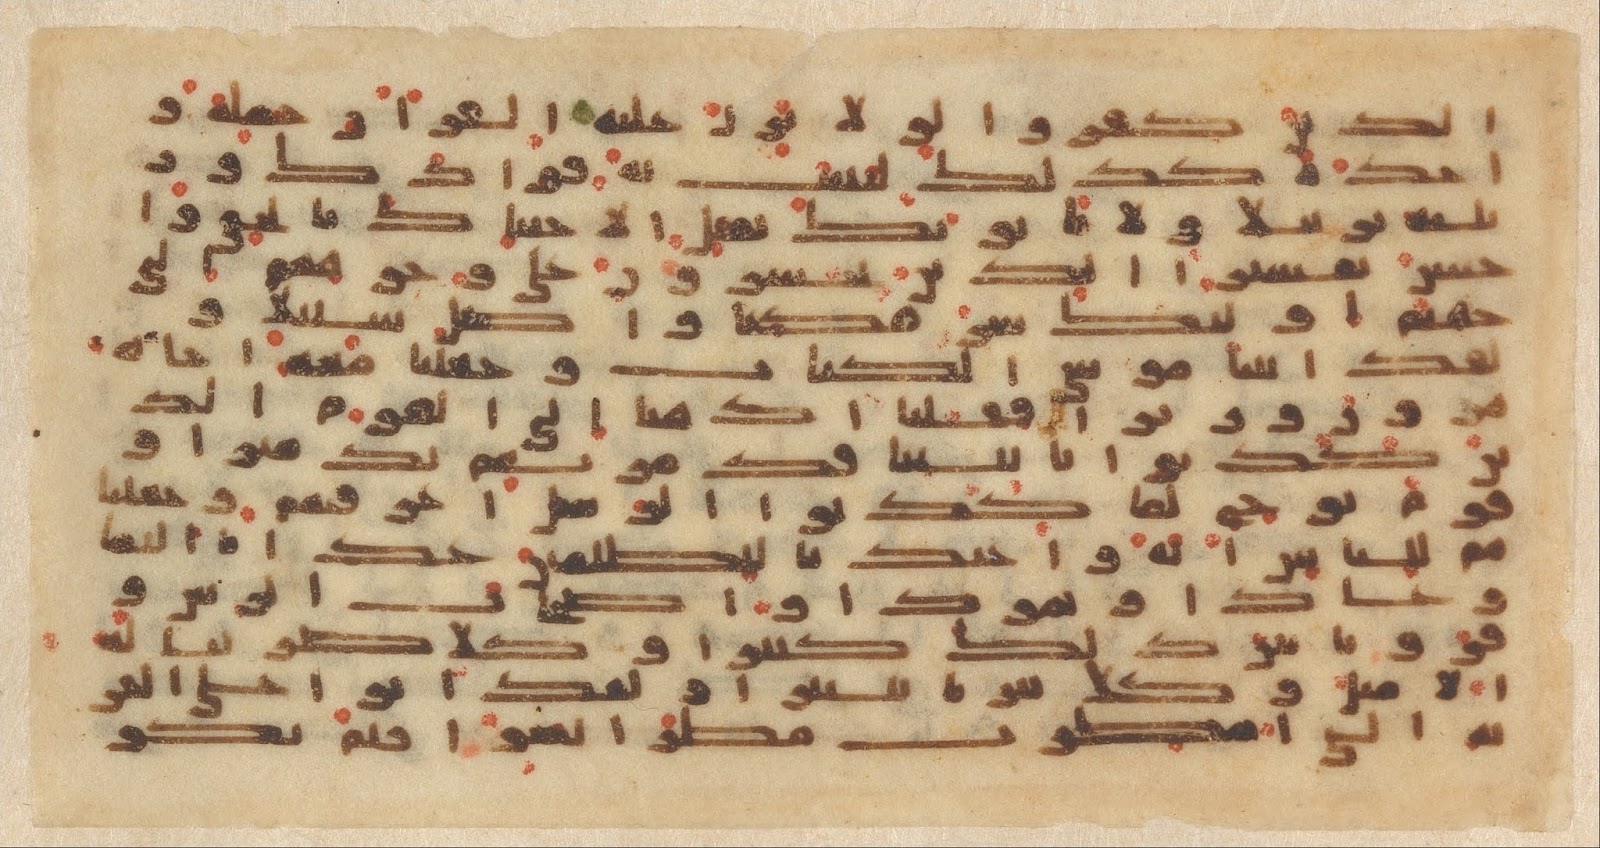 الذين كفروا لولا نزل عليه القران جملة و
احدة كذلك لنثبت به فؤادك ور
تلنه ترتيلا ولا ياتونك بمثل الا جئنك بالحق وا
حسن تفسيرا الذين يحشرون على وجوههم الى
جهنم اولئك شر مكانا واضل سبيلا و
لقد اتينا موسى الكتاب وجعلنا معه اخاه
هرون وزيرا فقلنا اذهبا الى القوم الذ
ين كذبوا باياتنا فدمرنهم تدميرا و
قوم نوح لما كذبوا الرسل اغرقنهم وجعلنا
هم للناس اية واعتدنا للظلمين عذابا اليما
وعادا وثمودا واصحاب الرس و
قرونا بين ذلك كثيرا وكلا ضربنا له
الامثل وكلا تبرنا تتبيرا ولقد اتوا على القر
ية التي امطرت مطر السوء افلم يكو